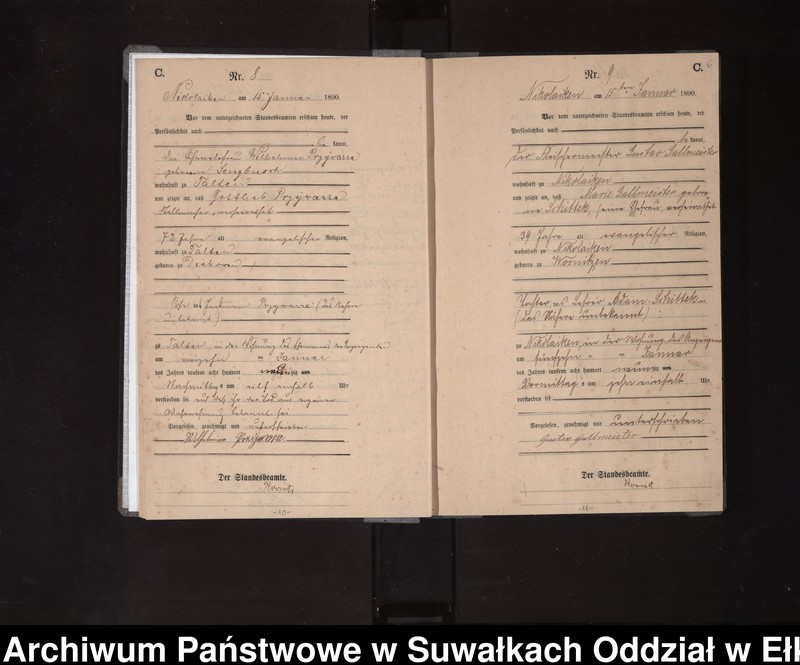 C.
Nr. 8
Nikolaiken am 15 Januar 1890.
Vor dem unterzeichneten Standesbeamten erschien heute, der
Persönlichkeit nach
be kannt,
die Wilhelmine Przyworra
geborene
wohnhaft zu Talten
und zeigte an, daß Gottlieb Przyworra
verheirathet
72 Jahre alt evangelischer Religion,
wohnhaft zu Talten
geboren zu
Sohn des Przyworra (das Nähere
unbekannt)
zu Talten, in der Wohnung des
am ten Januar
des Jahres tausend acht hundert neunzig
Nachmittags um elf einhalb Uhr
verstorben sei und daß ihr der Tod aus eigener
Wahrnehmung bekannt sei
Vorgelesen, genehmigt und unterschrieben
Wilhelmine Przyworra
Der Standesbeamte.
-10-
C.
Nr. 9
Nikolaiken am 15ten Januar 1890.
Vor dem unterzeichneten Standesbeamten erschien heute, der
Persönlichkeit nach
be kannt,
der Fleischermeister Gustav Gallmeister
wohnhaft zu Nikolaiken
und zeigte an, daß Marie Gallmeister gebore-
ne Schittek, seine Ehefrau, verheirathet
39 Jahre alt evangelischer Religion,
wohnhaft zu Nikolaiken
geboren zu Wornitzen
Tochter des Lehrer Adam Schittek
(das Nähere unbekannt)
zu Nikolaiken, in der Wohnung des Anzeigenden
am fünfzehn ten Januar
des Jahres tausend acht hundert neunzig
Vormittags um zehn einhalb Uhr
verstorben sei
Vorgelesen, genehmigt und unterschrieben
Gustav Gallmeister
Der Standesbeamte.
-11-
Archiwum Państwowe w Suwałkach Oddział w Ełk